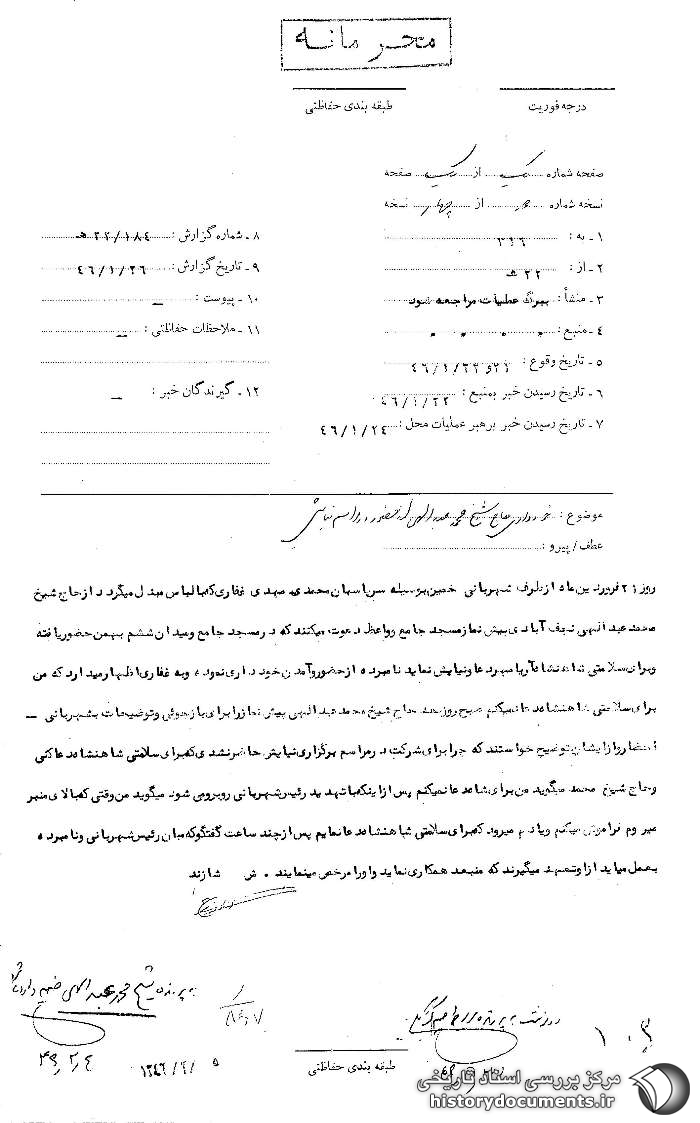 محرمانه
درجه فوریت
طبقه بندی حفاظتی
صفحه شماره یک از یک صفحه
نسخه شماره از چهار نسخه
۱ - به : ۳۱۶
۲ - از : ۲۲ ه‍
۳ - منشأ : ببرگ عملیات مراجعه شود
۴ - منبع :
۵ - تاریخ وقوع : ۴۶/۱/۲۲ و ۲۱
۶ - تاریخ رسیدن خبر بمنبع : ۴۶/۱/۲۲
۷ - تاریخ رسیدن خبر برهبر عملیات محل : ۴۶/۱/۲۴
۸ - شماره گزارش : ۲۲/۱۸۴ ه‍
۹ - تاریخ گزارش : ۴۶/۱/۲۶
۱۰ - پیوست : —
۱۱ - ملاحظات حفاظتی : —
۱۲ - گیرندگان خبر : —
موضوع : خودداری حاج شیخ محمد عبدالهی از حضور در مراسم نیایش
عطف / پیرو :
روز ۲۱ فروردین ماه ازطرف شهربانی خمین بوسیله سرپاسبان محمدی مهدی غفاری که بالباس مبدل میگردد ازحاج شیخ
محمد عبدالهی نجف آبادی پیش نماز مسجد جامع وواعظ دعوت میکنند که درمسجد جامع ومیدان ششم بهمن حضوریافته
وبرای سلامتی شاهنشاه آریامهر دعاونیایش نماید نامبرده ازحضوروآمدن خود داری نموده وبه غفاری اظهارمیدارد که من
برای سلامتی شاهنشاه دعا نمیکنم صبح روز بعد حاج شیخ محمد عبدالهی پیش نماز رابرای بازجوئی وتوضیحات بشهربانی -
احضاروازایشان توضیح خواستند که چرا برای شرکت درمراسم برگزاری نیایش حاضرنشدی که برای سلامتی شاهنشاه دعاکنی
وحاج شیخ محمد میگوید من برای شاه دعا نمیکنم پس ازاینکه باتهدید رئیس شهربانی روبرومی شود میگوید من وقتی که بالای منبر
میروم فراموش میکنم ویادم میرود که برای سلامتی شاهنشاه دعانمایم پس ازچند ساعت گفتگو که میان رئیس شهربانی ونامبرده
بعمل میاید ازاوتعهد میگیرند که منبعد همکاری نماید واورا مرخص مینمایند . ش شازند
به پرونده شیخ محمد عبدالهی ضمیمه
۴۹/۲/۴
۱۳۴۶/۶/۵
۱۰۳
طبقه بندی حفاظتی
مرکز بررسی اسناد تاریخی
historydocuments.ir